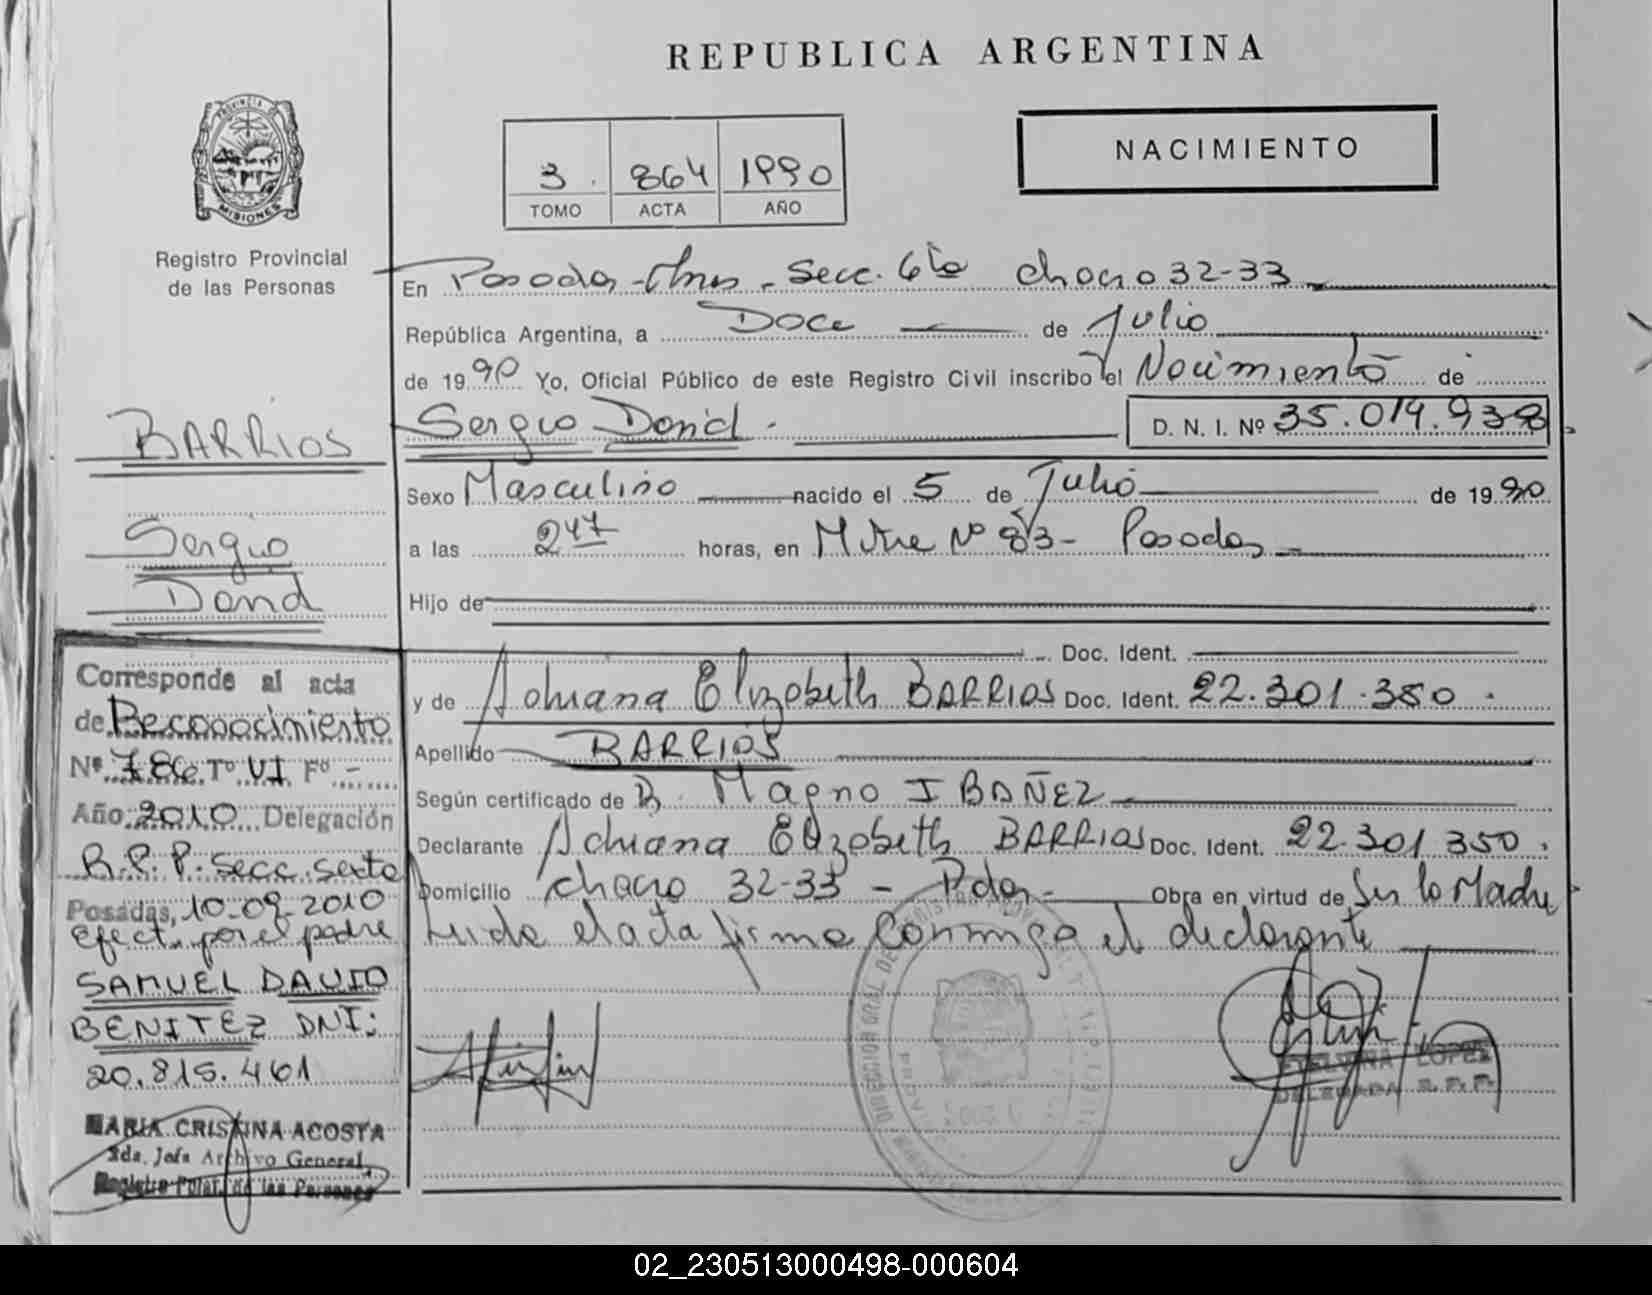 REPUBLICA ARGENTINA
PROVINCIA DE
MISIONES
Registro Provincial
de las Personas
3. 864 1990
TOMO ACTA AÑO
NACIMIENTO
En Posadas - Mnes - Secc. 6ta chacra 32-33
República Argentina, a Doce de Julio
de 1990 Yo, Oficial Público de este Registro Civil inscribo el Nacimiento de
Sergio David. D. N. I. Nº 35.019.938
BARRIOS
Sergio
David
Sexo Masculino nacido el 5 de Julio de 1990
a las 247 horas, en Mitre Nº 83 - Posadas
Hijo de
Doc. Ident.
y de Adriana Elizabeth BARRIOS Doc. Ident. 22.301.350.
Apellido BARRIOS
Según certificado de Magno IBAÑEZ
Declarante Adriana Elizabeth BARRIOS Doc. Ident. 22.301 350.
Domicilio chacra 32-33 - Pdas - Obra en virtud de Ser la Madre
Leida el acta firma conmigo el declarante
Corresponde al acta
de Reconocimiento
Nº 786 Tº VI Fº -
Año 2010 Delegación
R.P.P. Secc. sexta
Posadas, 10-09-2010
Efect. por el padre
SAMUEL DAVID
BENITEZ DNI:
20.815.461
MARIA CRISTINA ACOSTA
2da. Jefa Archivo General
Registro Pcial. de las Personas
LOPEZ
DELEGADA R. P. P.
02_230513000498-000604